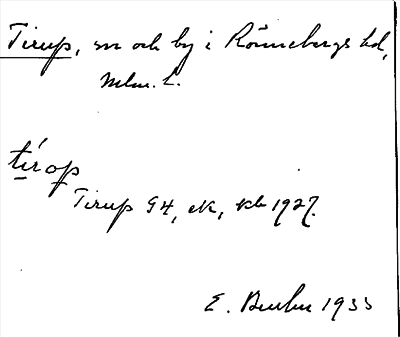 Tirup, sn och by i Rönnebergs hd,
Mlm. L.
tírop
Tirup G4, eK, kb 1927.
E. 1933